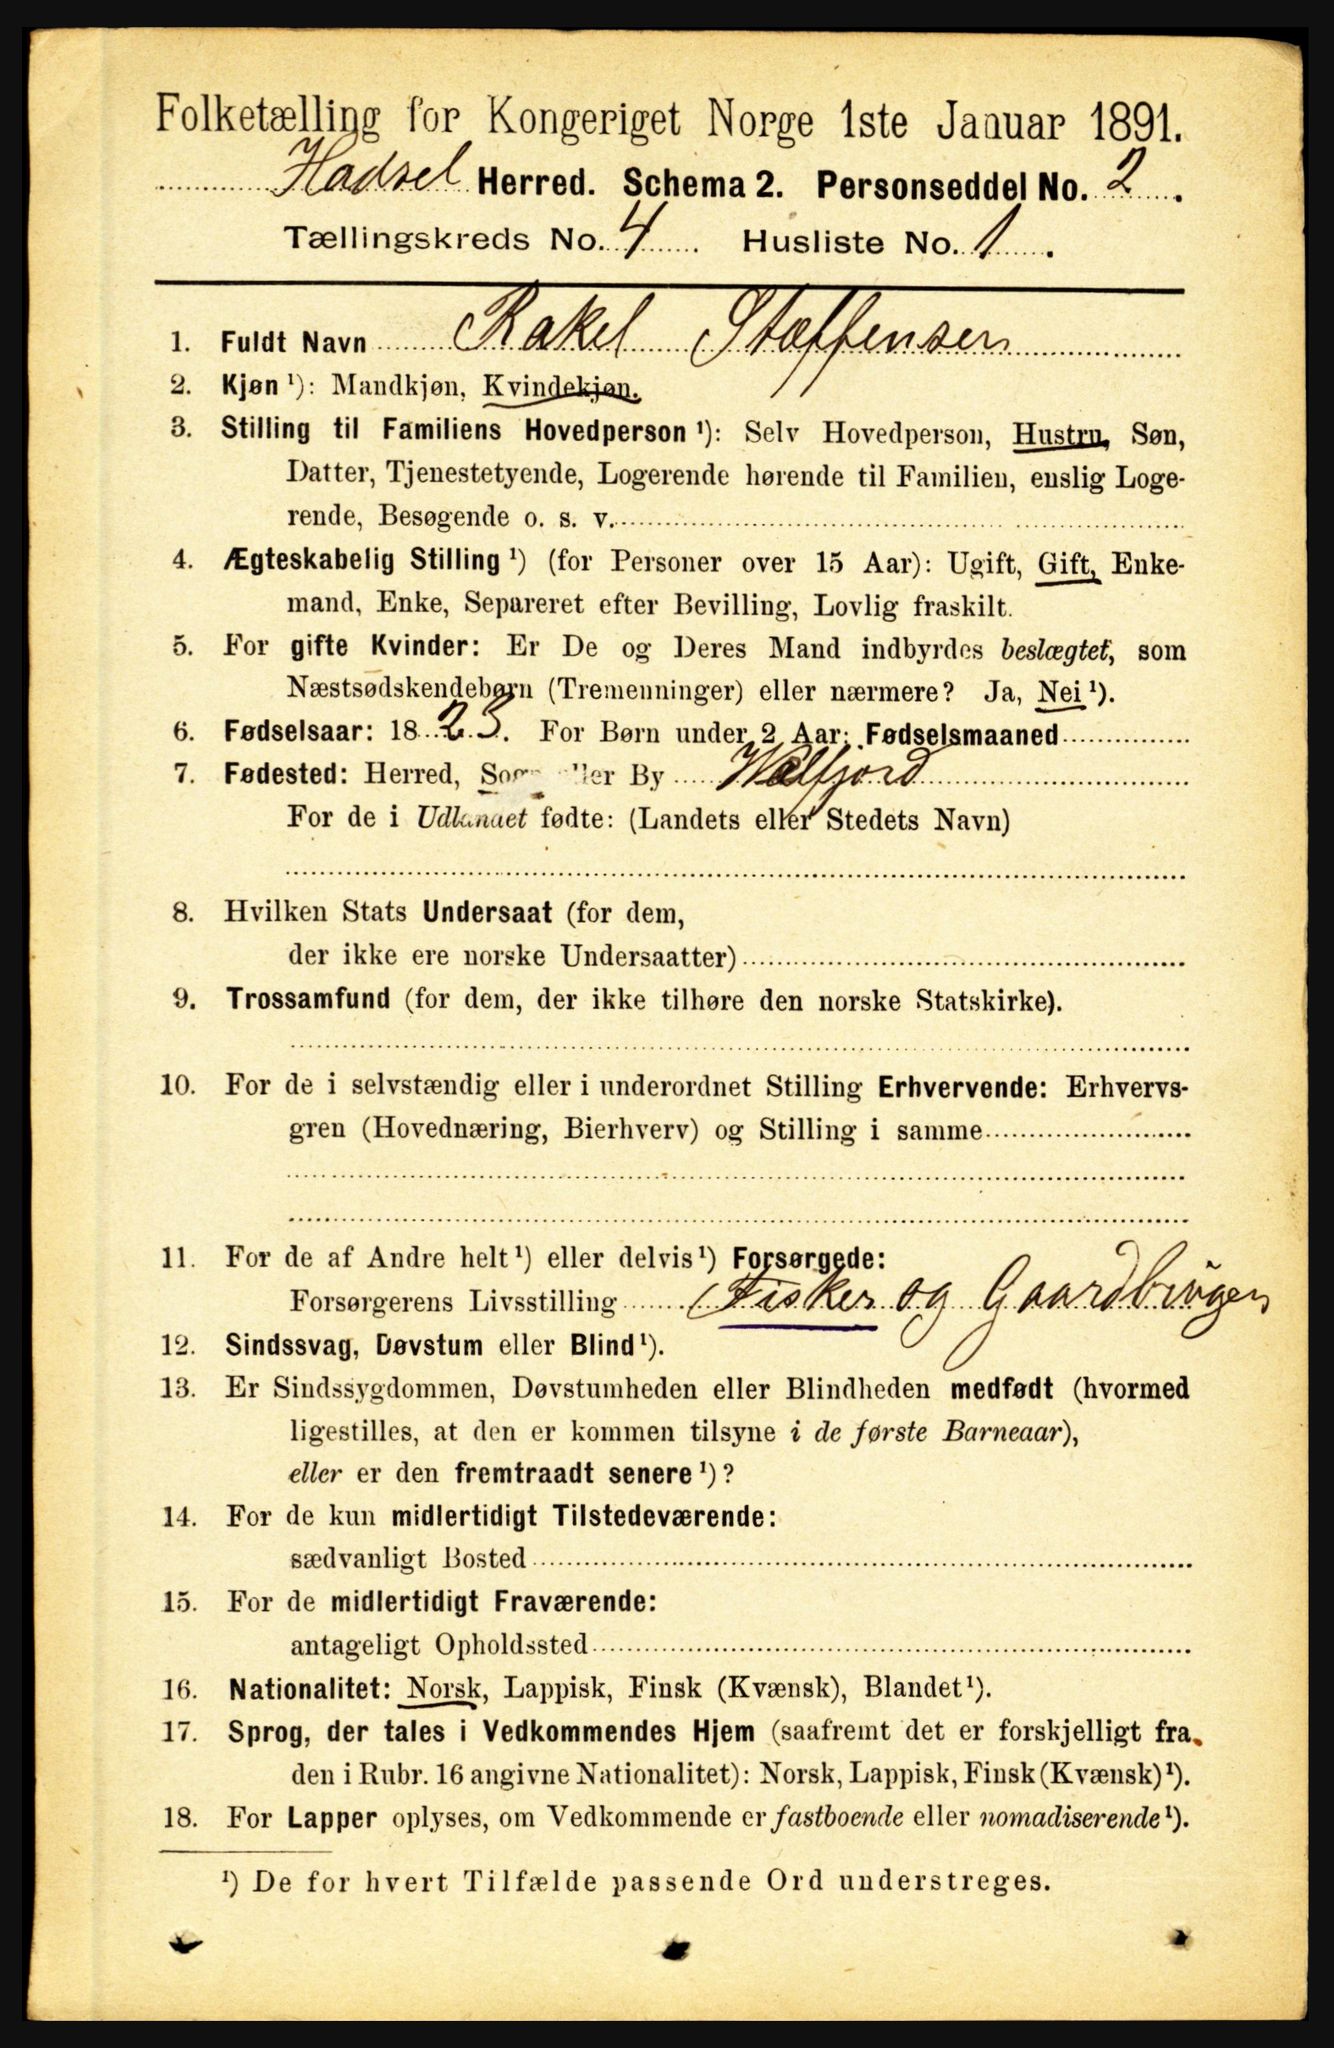 Folketælling for Kongeriget Norge 1ste Januar 1891.
Hadsel Herred. Schema 2. Personseddel No. 2.
Tællingskreds No. 4 Husliste No. 1.
1. Fuldt Navn Rakel Staffensen
2. Kjøn ¹): Mandkjøn, Kvindekjøn.
3. Stilling til Familiens Hovedperson ¹): Selv Hovedperson, Hustru, Søn,
Datter, Tjenestetyende, Logerende hørende til Familien, enslig Loge-
rende, Besøgende o. s. v.
4. Ægteskabelig Stilling ¹) (for Personer over 15 Aar): Ugift, Gift, Enke-
mand, Enke, Separeret efter Bevilling, Lovlig fraskilt.
5. For gifte Kvinder: Er De og Deres Mand indbyrdes beslægtet, som
Næstsødskendebørn (Tremenninger) eller nærmere? Ja, Nei ¹).
6. Fødselsaar: 1823. For Børn under 2 Aar: Fødselsmaaned
7. Fødested: Herred, Sogn eller By Welfjord
For de i Udlandet fødte: (Landets eller Stedets Navn)
8. Hvilken Stats Undersaat (for dem,
der ikke ere norske Undersaatter)
9. Trossamfund (for dem, der ikke tilhøre den norske Statskirke).
10. For de i selvstændig eller i underordnet Stilling Erhvervende: Erhvervs-
gren (Hovednæring, Bierhverv) og Stilling i samme
11. For de af Andre helt ¹) eller delvis ¹) Forsørgede:
Forsørgerens Livsstilling Fisker og Gaardbrugen
12. Sindssvag, Døvstum eller Blind ¹).
13. Er Sindssygdommen, Døvstumheden eller Blindheden medfødt (hvormed
ligestilles, at den er kommen tilsyne i de første Barneaar),
eller er den fremtraadt senere ¹)?
14. For de kun midlertidigt Tilstedeværende:
sædvanligt Bosted
15. For de midlertidigt Fraværende:
antageligt Opholdssted
16. Nationalitet: Norsk, Lappisk, Finsk (Kvænsk), Blandet ¹).
17. Sprog, der tales i Vedkommendes Hjem (saafremt det er forskjelligt fra
den i Rubr. 16 angivne Nationalitet): Norsk, Lappisk, Finsk (Kvænsk) ¹).
18. For Lapper oplyses, om Vedkommende er fastboende eller nomadiserende ¹).
¹) De for hvert Tilfælde passende Ord understreges.